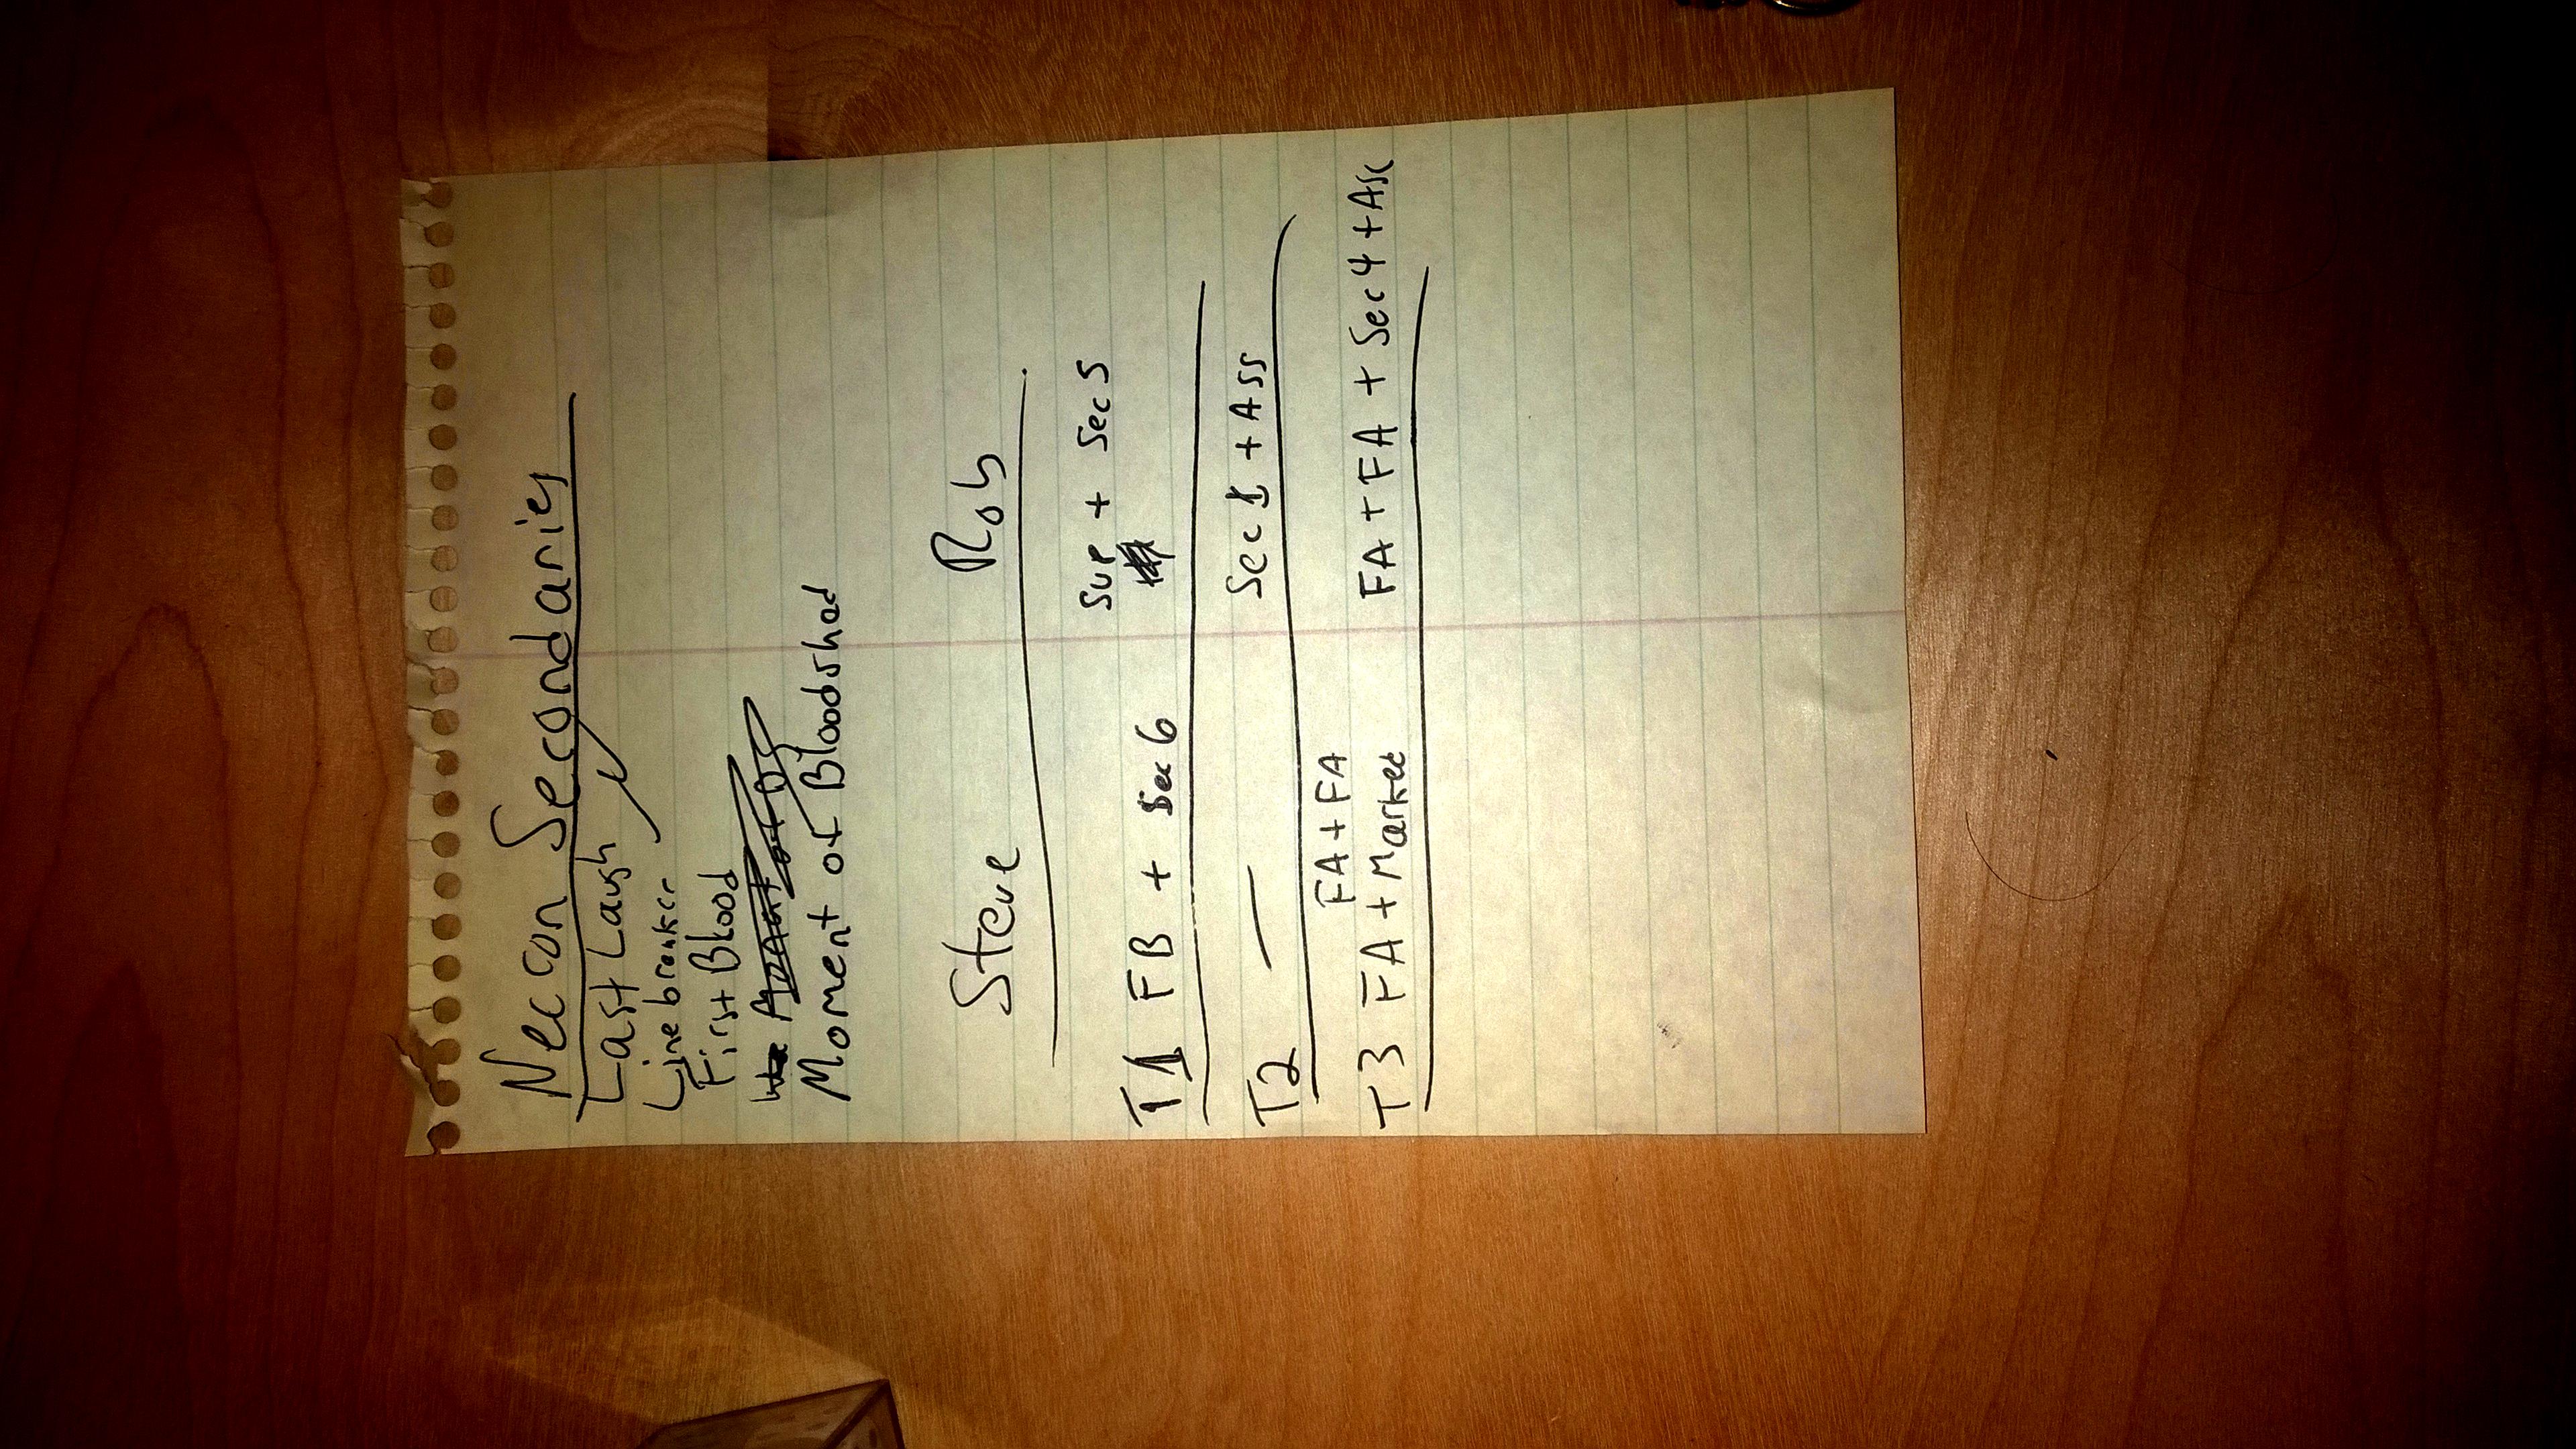 Necon Secondaries
Last Laugh
Linebreaker
First Blood
Moment of Bloodshed
Steve Rob
Sup + Sec 5
T1 FB + Sec 6
T2 — Sec 1 + Ass
FA + FA
T3 FA + Marked FA + FA + Sec 4 + Asc